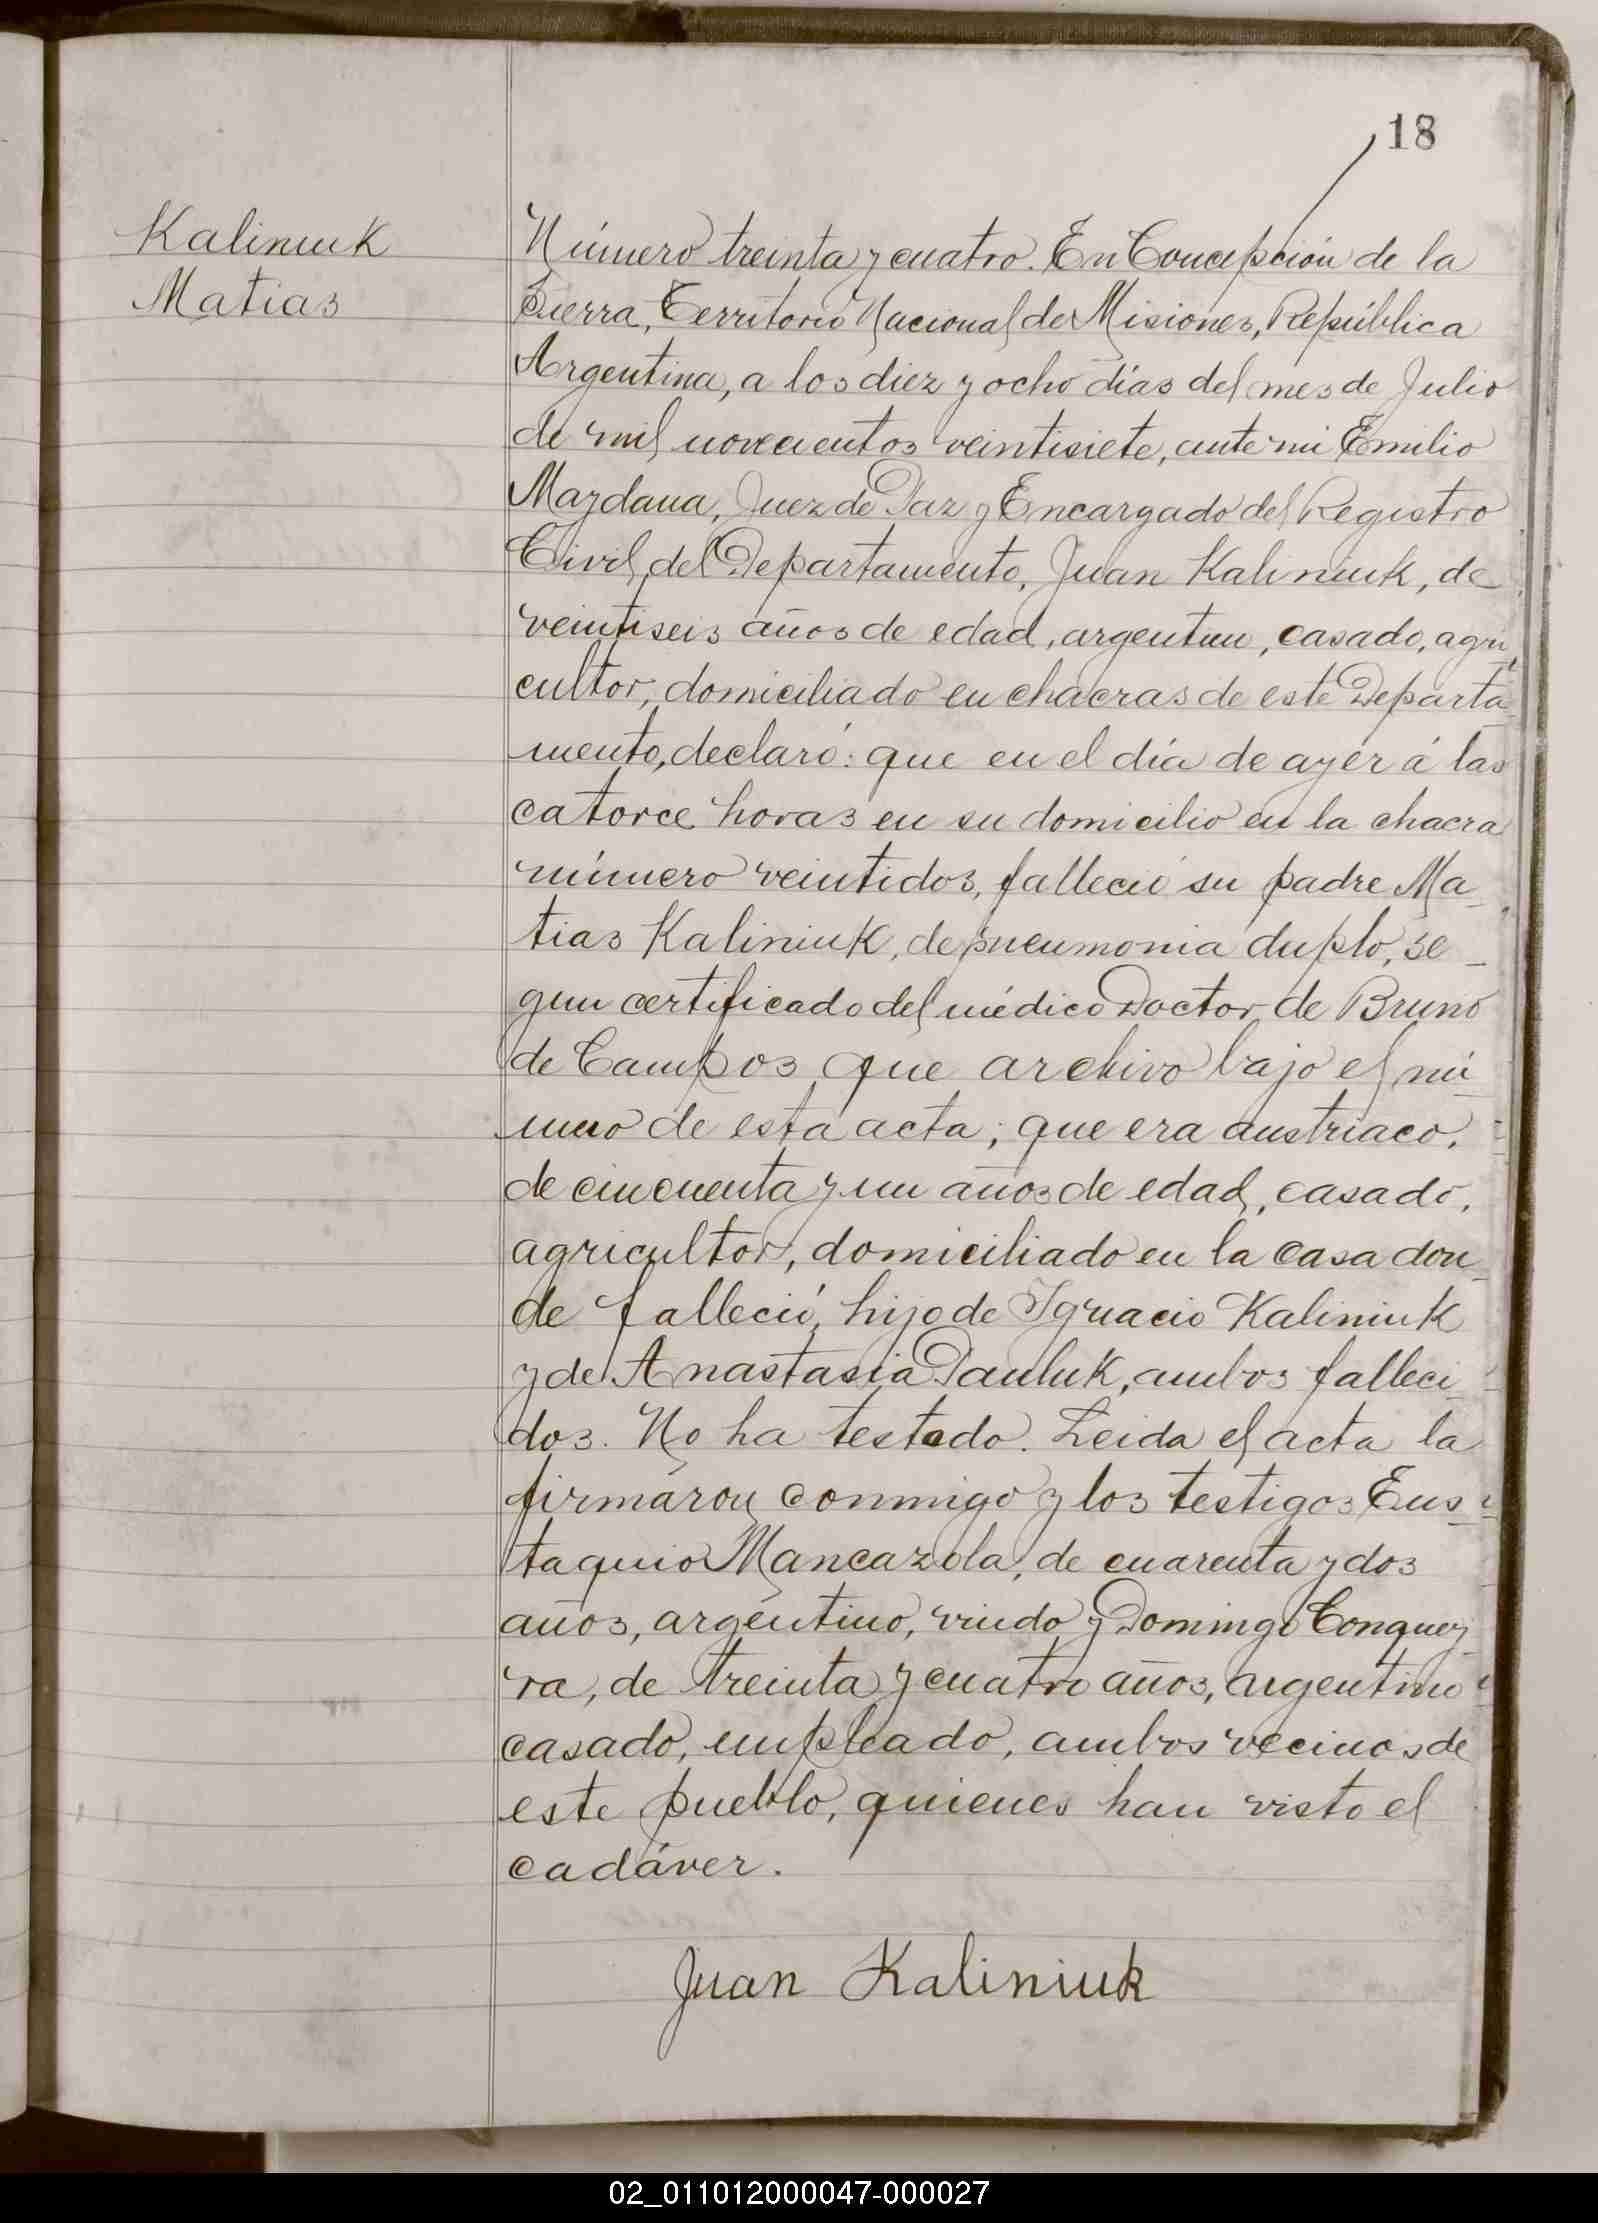 18
Kaliniuk
Matias
Número treinta y cuatro. En Concepción de la
Sierra, Territorio Nacional de Misiones, República
Argentina, a los diez y ocho días del mes de Julio
de mil novecientos veintisiete, ante mi Emilio
Maydana, Juez de Paz y Encargado del Registro
Civil del Departamento, Juan Kaliniuk, de
veintiseis años de edad, argentino, casado, agri
cultor, domiciliado en chacras de este Departa
mento, declaró: que en el día de ayer á las
catorce horas en su domicilio en la chacra
número veintidos, falleció su padre Ma_
tias Kaliniuk, de pneumonia duplo, se_
gun certificado del médico Doctor de Bruno
de Campos que archivo bajo el nú_
mero de esta acta; que era austriaco,
de cincuenta y un años de edad, casado,
agricultor, domiciliado en la casa don_
de falleció, hijo de Ignacio Kaliniuk
y de Anastasia Pauluk, ambos falleci_
dos. No ha testado. Leida el acta la
firmáron conmigo y los testigos Eus_
taquio Mancazola, de cuarenta y dos
años, argentino, viudo y Domingo Conquey_
ra, de treinta y cuatro años, argentino
casado, empleado, ambos vecinos de
este pueblo, quienes han visto el
cadáver.
Juan Kaliniuk
02_011012000047-000027